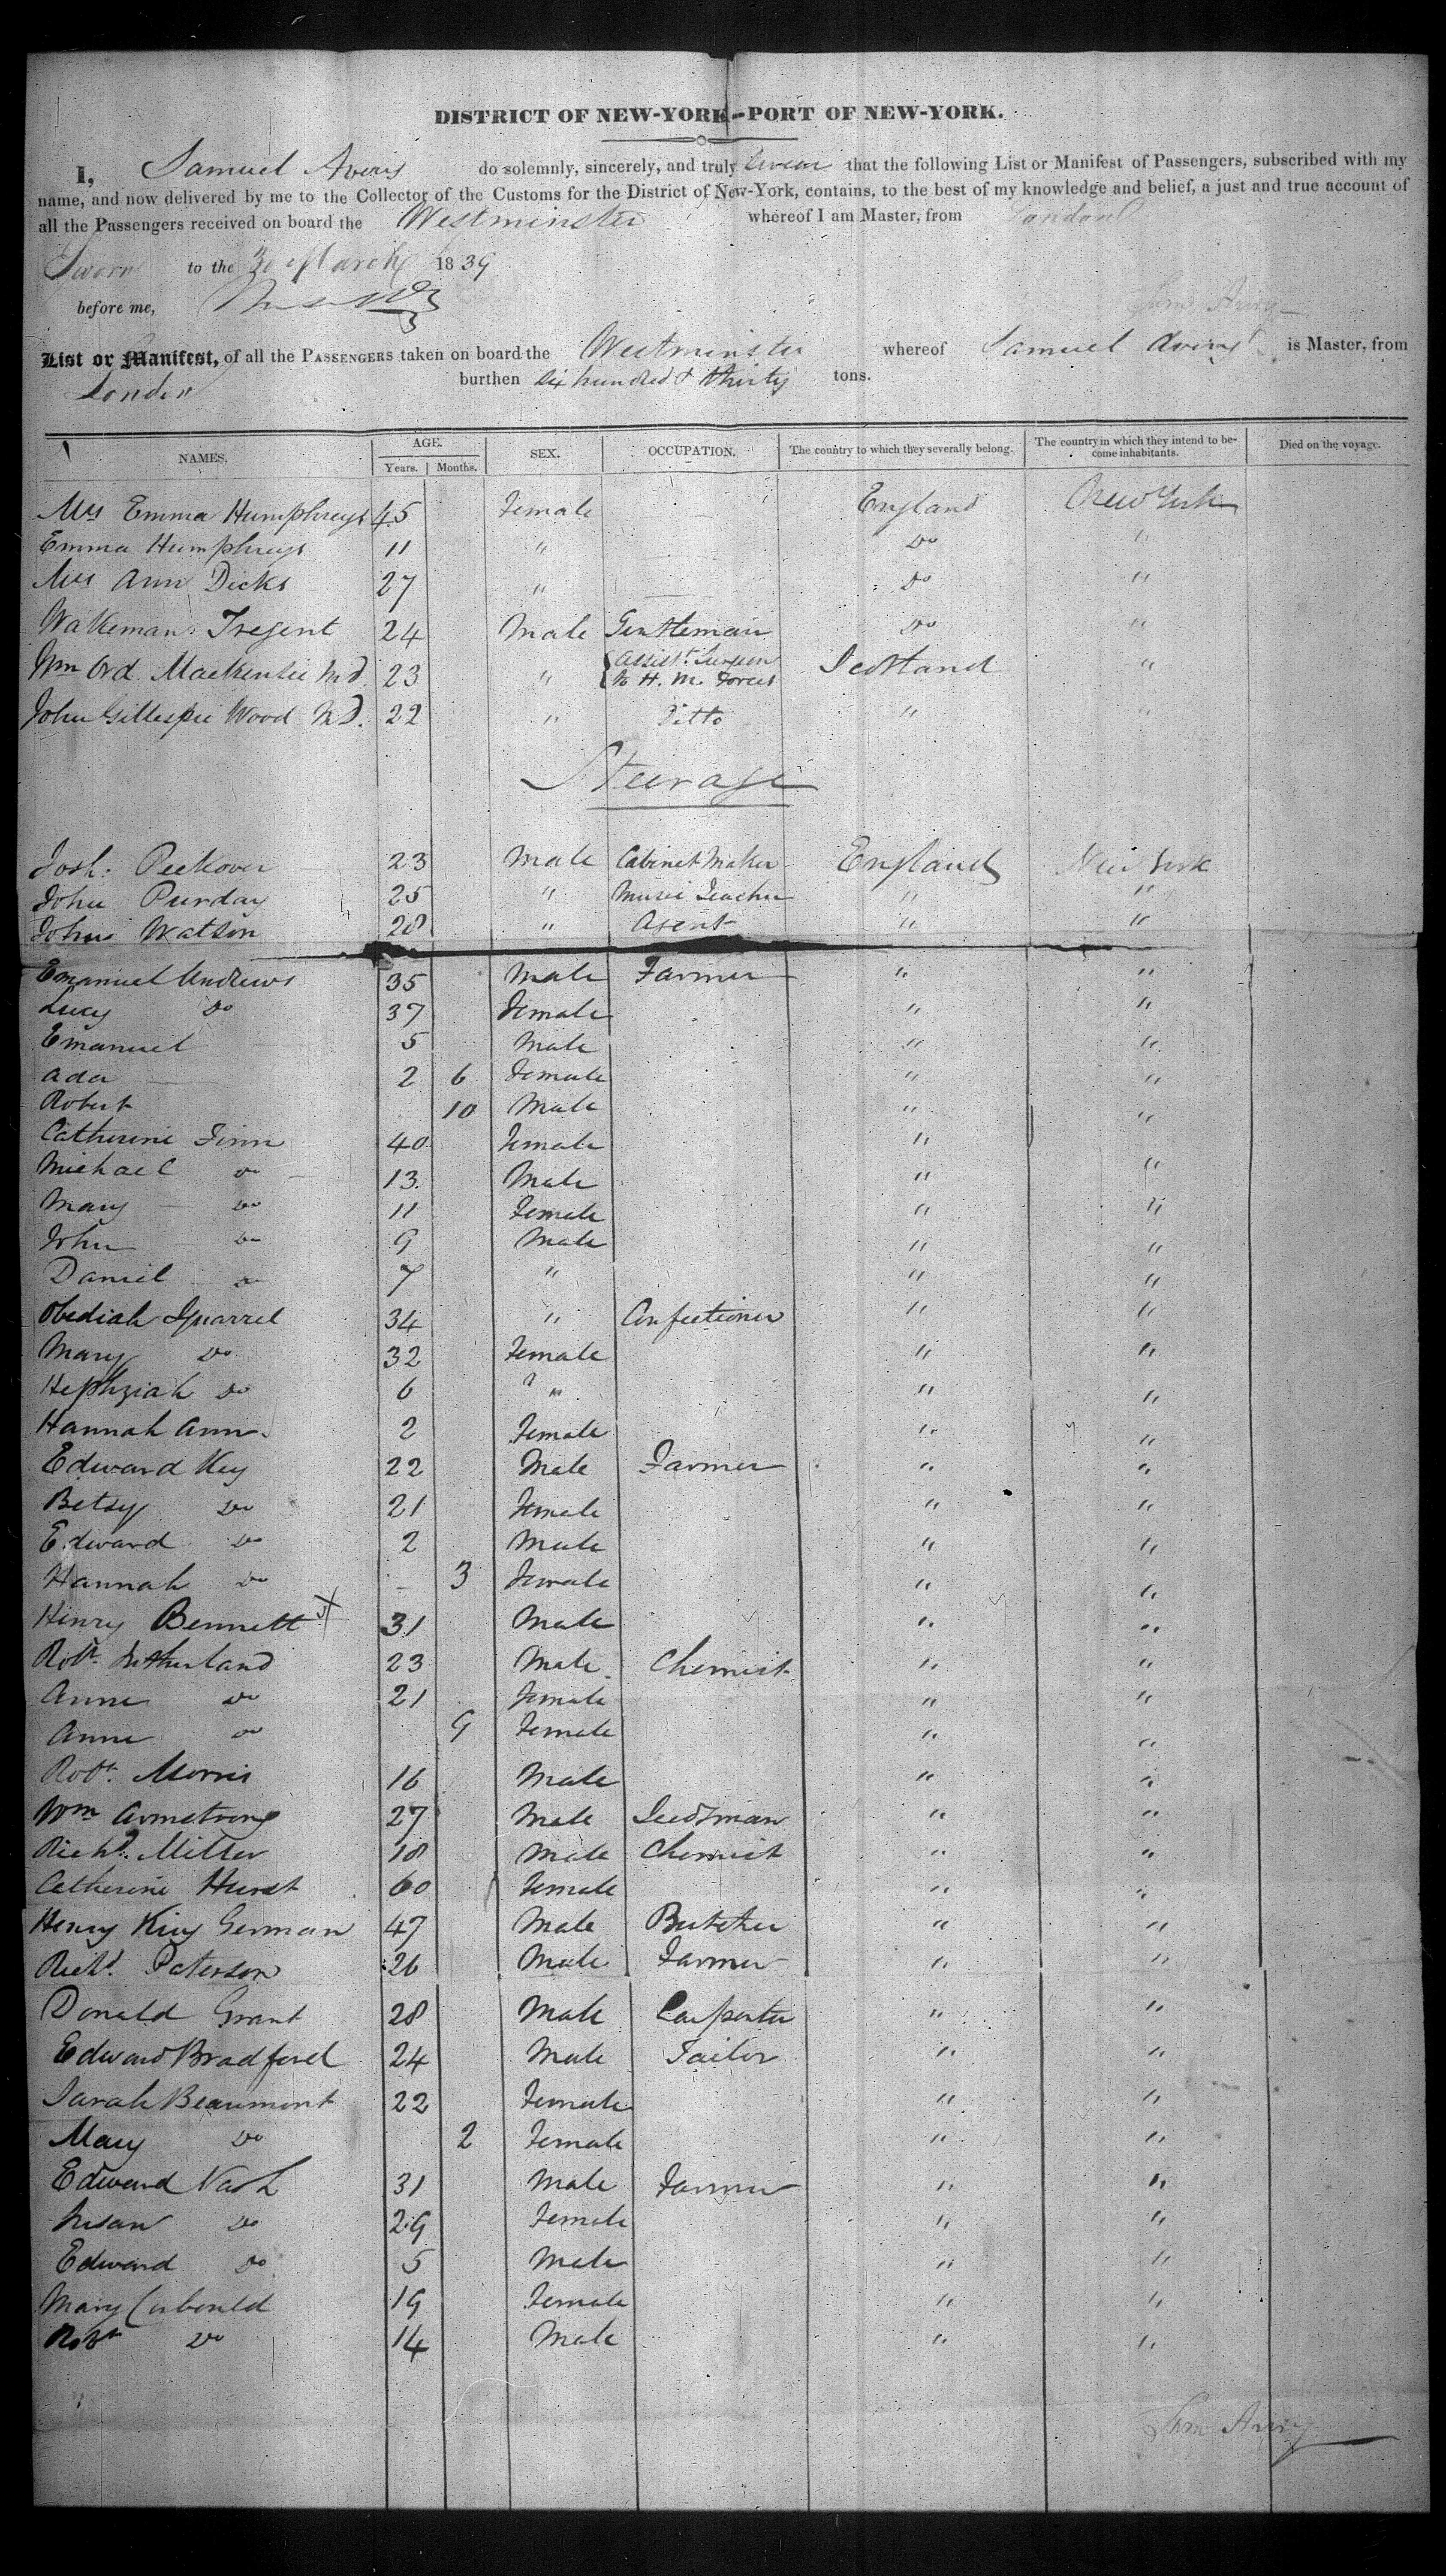 DISTRICT OF NEW-YORK--PORT OF NEW-YORK.
I, Samuel Avery do solemnly, sincerely, and truly swear that the following List or Manifest of Passengers, subscribed with my
name, and now delivered by me to the Collector of the Customs for the District of New-York, contains, to the best of my knowledge and belief, a just and true account of
all the Passengers received on board the Westminster whereof I am Master, from London
Sworn to the 30 March 1839
before me,
Sam Avery
List or Manifest, of all the PASSENGERS taken on board the Westminster whereof Samuel Avery is Master, from
London burthen six hundred & thirty tons.
NAMES. AGE. Years. Months. SEX. OCCUPATION. The country to which they severally belong. The country in which they intend to become inhabitants. Died on the voyage.
Mrs Emma Humphreys 45 Female England New York
Emma Humphreys 11 " Do "
Mrs Ann Dicks 27 " Do "
Wakeman Tregent 24 Male Gentleman Do "
Wm Ord Mackenzie M.D. 23 " Assist Surgeon to H. M. Forces Scotland "
John Gillespie Wood M.D. 22 " Ditto " "
Steerage
Josh: Peckover 23 Male Cabinet Maker England New York
John Purday 25 " Music Teacher " "
John Watson 28 " Agent " "
Emanuel Andrews 35 Male Farmer " "
Lucy Do 37 Female " "
Emanuel 5 Male " "
Ada 2 6 Female " "
Robert 10 Male " "
Catherine Finn 40 Female " "
Michael Do 13 Male " "
Mary Do 11 Female " "
John Do 9 Male " "
Daniel Do 7 " " "
Obediah Squarrel 34 " Confectioner " "
Mary Do 32 Female " "
Hephziah Do 6 " " "
Hannah Ann 2 Female " "
Edward Key 22 Male Farmer " "
Betsy Do 21 Female " "
Edward Do 2 Male " "
Hannah Do 3 Female " "
Henry Bennett 31 Male " "
Robt. Sutherland 23 Male Chemist " "
Anne Do 21 Female " "
Anne Do 9 Female " "
Robt. Morris 16 Male " "
Wm Armstrong 27 Male Seedsman " "
Richd. Miller 18 Male Chemist " "
Catherine Hurst 60 Female " "
Henry King German 47 Male Butcher " "
Richd. Paterson 26 Male Farmer " "
Donald Grant 28 Male Carpenter " "
Edward Bradford 24 Male Tailor " "
Sarah Beaumont 22 Female " "
Mary Do 2 Female " "
Edward Nash 31 Male Farmer " "
Susan Do 29 Female " "
Edward Do 5 Male " "
Mary Corbould 19 Female " "
Robt Do 14 Male " "
Sam Avery